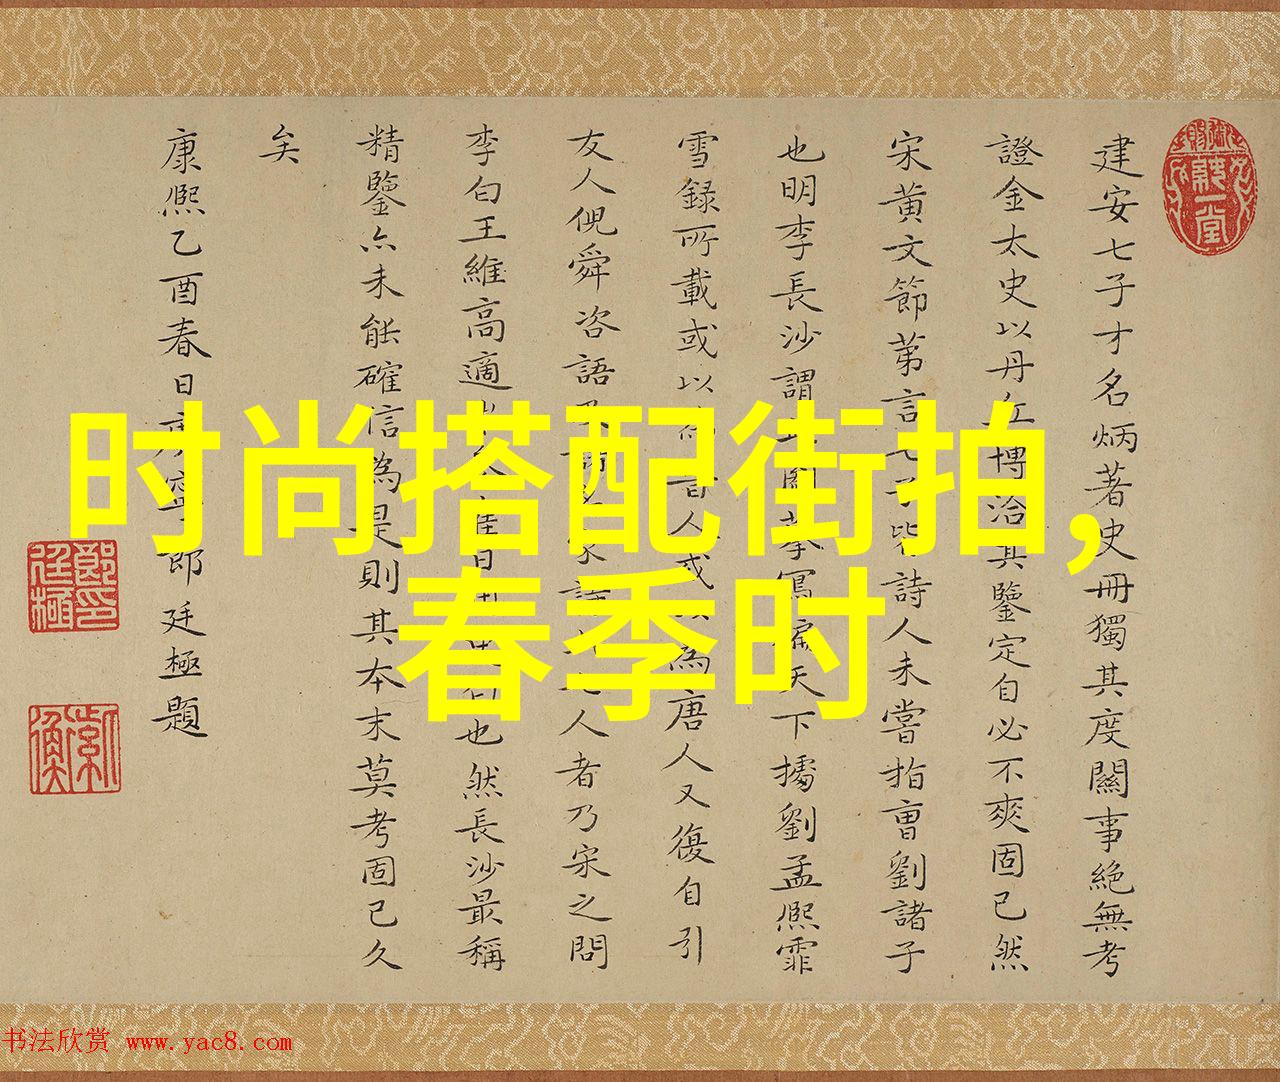 建安七子才名炳著史冊獨其度關事絕無考
證金太史以丹丘博洽其鑒定自必不爽固已然
宋黃文節第言七子皆詩人未嘗指曹劉諸子
也明李長沙謂 圖摹寫徧天下據劉孟熙霏
雪録所載或以 晉人或以為唐人又復自引
友人倪舜咨語 宋 人者乃宋之問
李白王維高適 也然長沙最稱
精鑒亦未能確信為是則其本末莫考固已久
矣
康熙乙酉春日 郎廷極題
时尚搭配街拍,
春季时
书法欣赏 www.yac8.com